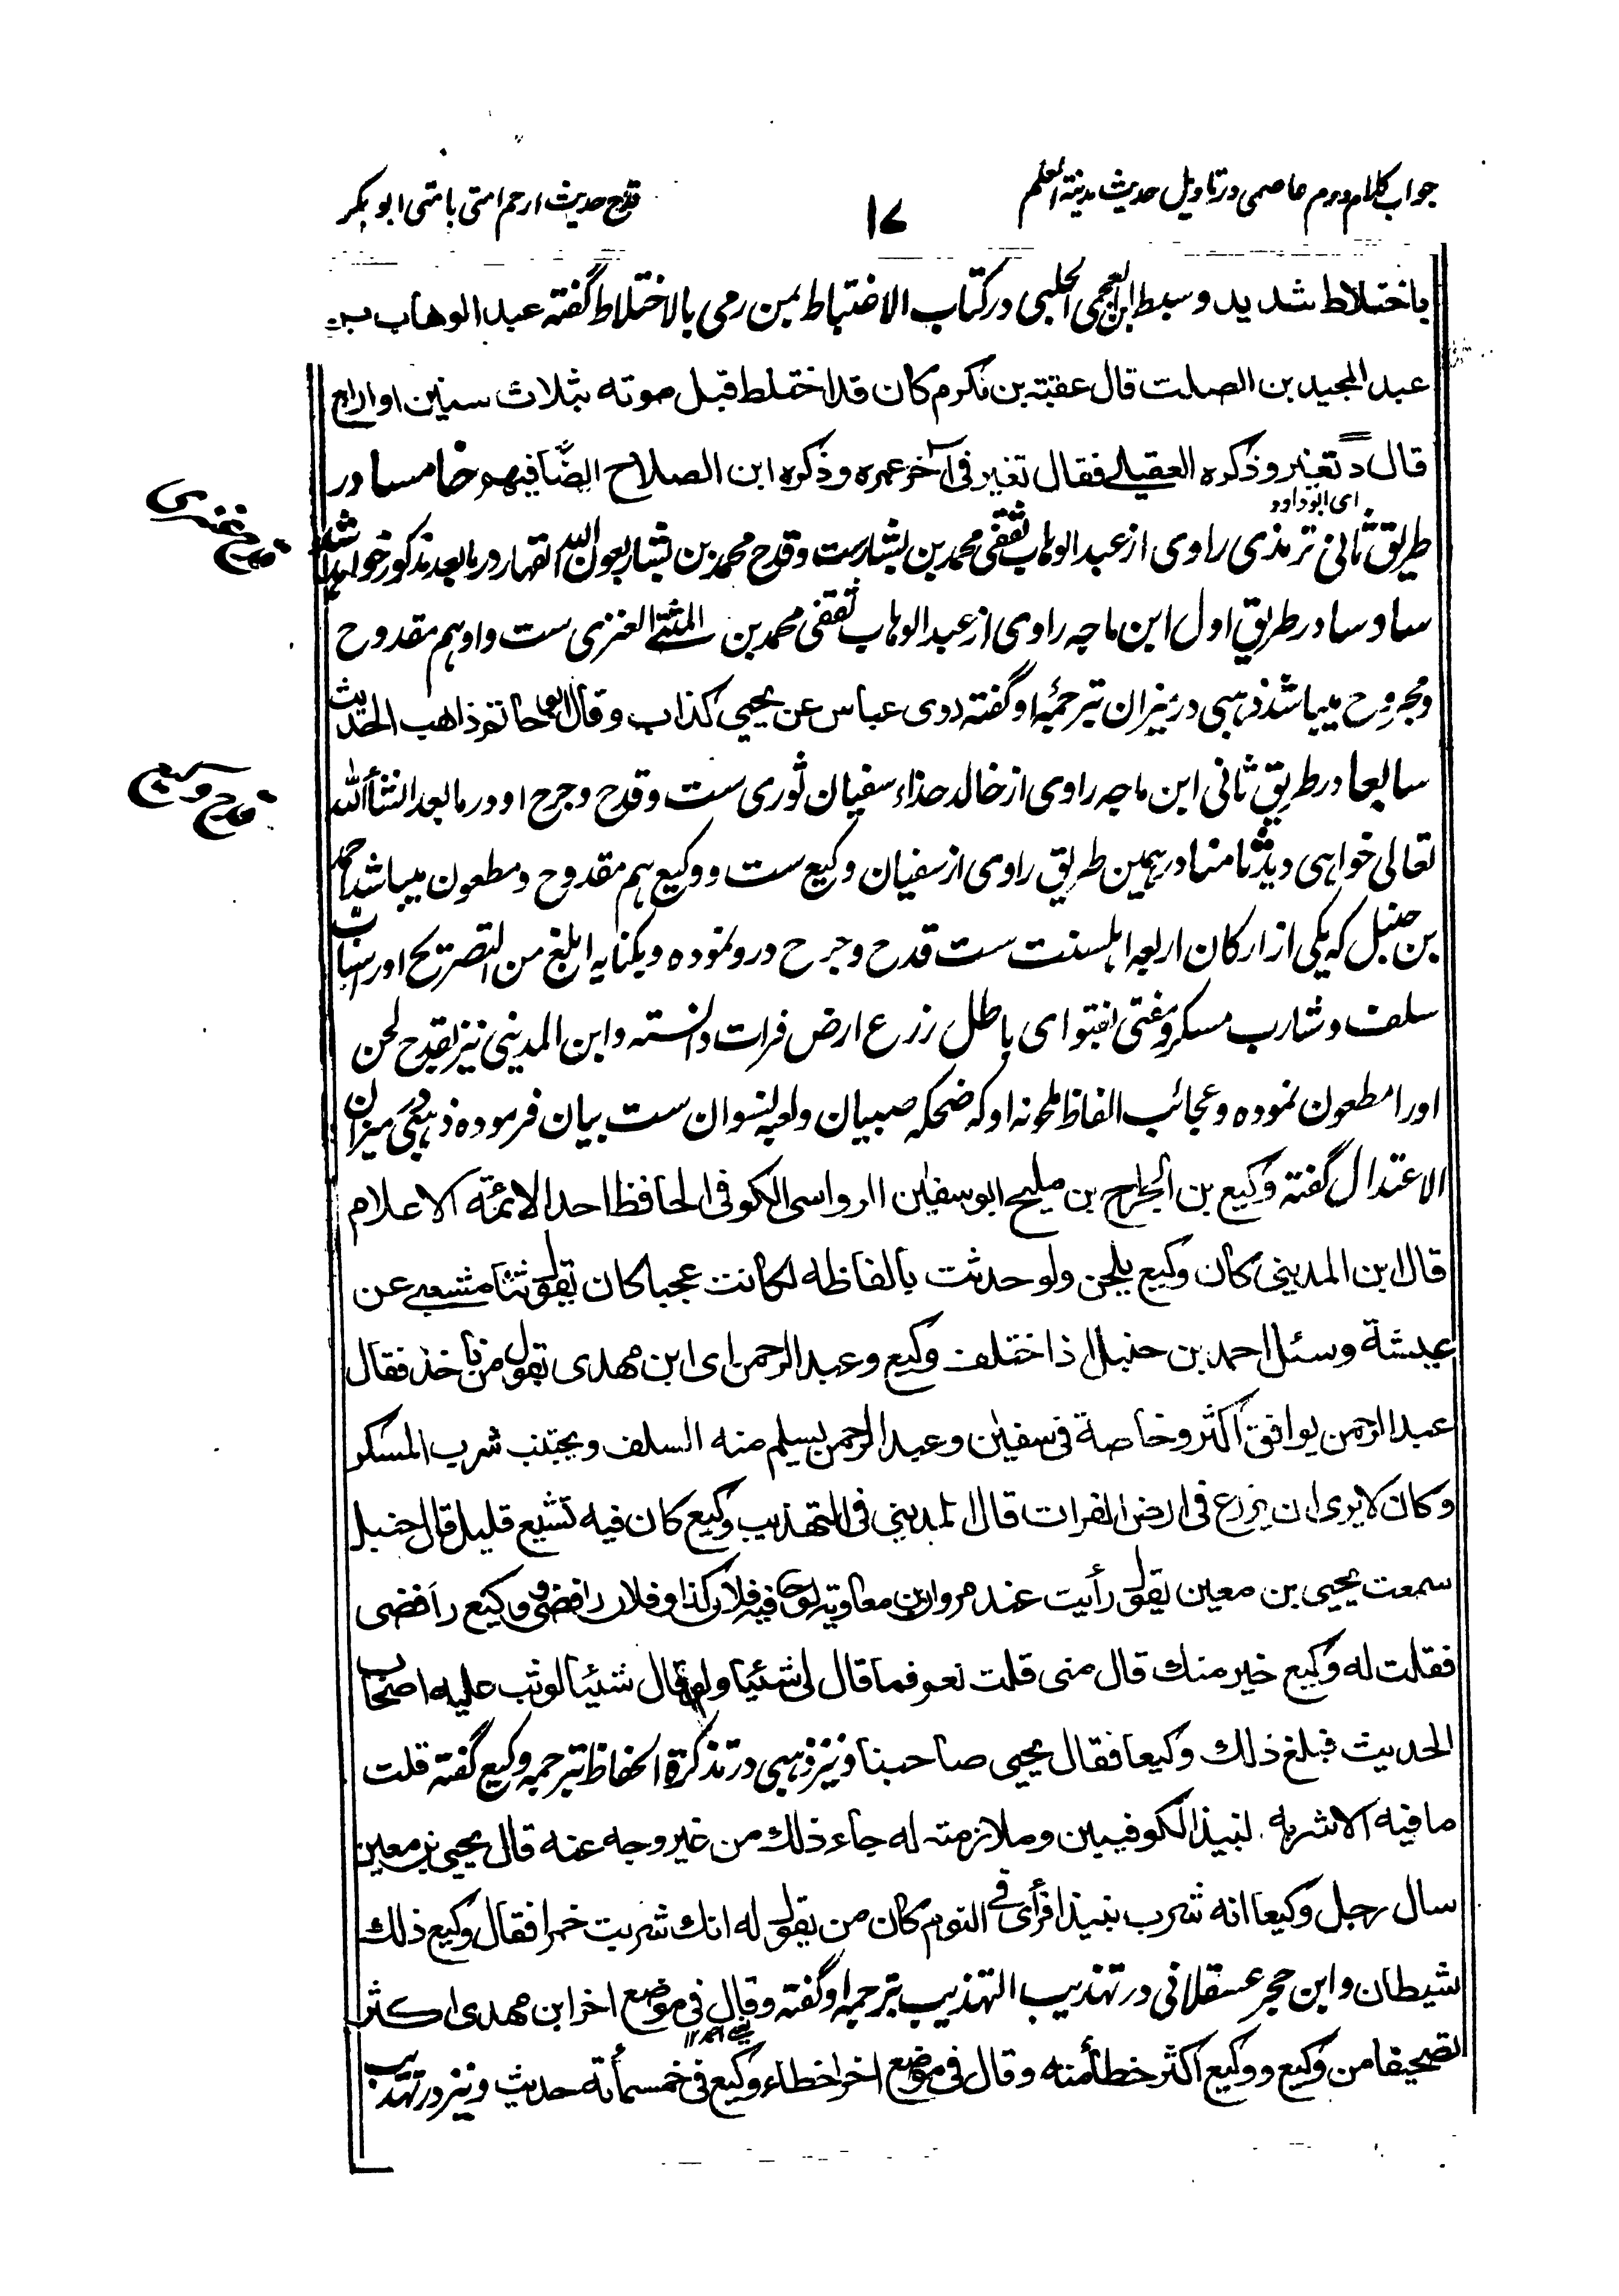 جواب کلام دوم عاصمی در تاویل حدیث مدینة العلم
۱۷
قدح حدیث ارحم امتی بامتی ابو بکر
باختلاط شدید و سبط ابن العجمی الحلبی در کتاب الاغتباط بمن رمی بالاختلاط گفته عبد الوهاب بن
عبد المجید بن الصلت قال عقبة بن مکرم کان قد اختلط قبل موته بثلاث سنین او اربع
قال د تغیر و ذکره العقیلی فقال تغیر فی آخر عمره و ذکره ابن الصلاح ایضًا فیهم خامسا در
ای ابو داود
طریق ثانی ترمذی راوی از عبد الوهاب ثقفی محمد بن بشارست و قدح محمد بن بشار بعون الله القهار در ما بعد مذکور خواهد شد
سادسا در طریق اول ابن ماجه راوی از عبد الوهاب ثقفی محمد بن المثنی العنزی ست و او هم مقدوح
قدح عنزی
و مجروح میباشد ذهبی در میزان بترجمهٔ او گفته روی عباس عن یحیی کذاب و قال ابو حاتم ذاهب الحدیث
سابعا در طریق ثانی ابن ماجه راوی از خالد حذاء سفیان ثوری ست و قدح و جرح او در ما بعد انشأ الله
قدح وکیع
تعالی خواهی دید ثامنا در همین طریق راوی از سفیان وکیع ست و وکیع هم مقدوح و مطعون میباشد احمد
بن حنبل که یکی از ارکان اربعه اهلسنت ست قدح و جرح در و نموده و بکنایه ابلغ من التصریح او را سبّاب
سلف و شارب مسکر و مفتی بفتوای باطل زرع ارض فرات دانسته و ابن المدینی نیز بقدح لحن
او را مطعون نموده و عجائب الفاظ ملحونه او که ضحکه صبیان و لعبه نسوان ست بیان فرموده ذهبی در میزان
الاعتدال گفته وکیع بن الجراح بن ملیح ابو سفیٰن الرواسی الکوفی الحافظ احد الائمة الاعلام
قال ابن المدینی کان وکیع یلحن ولو حدثت بالفاظه لکانت عجبا کان یقول ثنا مشعبی عن
عیشة و سئل احمد بن حنبل اذا اختلف وکیع و عبد الرحمن ای ابن مهدی بقول من ناخذ فقال
عبد الرحمن یوافق اکثر و خاصة فی سفیٰن و عبد الرحمن یسلم منه السلف و یجتنب شرب المسکر
و کان لا یری ان یزرع فی ارض الفرات قال المدینی فی التهذیب وکیع کان فیه تشیع قلیل قال حنبل
سمعت یحیی بن معین یقول رأیت عند مروان بن معاویة لوحا فیه فلان کذا و فلان رافضی و وکیع رافضی
فقلت له وکیع خیر منک قال منی قلت نعم فما قال لی شئیا ولو قال شئیا لوثب علیه اصحاب
الحدیث فبلغ ذلک وکیعا فقال یحیی صاحبنا و نیز ذهبی در تذکرة الحفاظ بترجمه وکیع گفته قلت
ما فیه الا شربه لنبیذ الکوفیین و ملازمته له جاء ذلک من غیر وجه عنه قال یحیی بن معین
سال رجل وکیعا انه شرب نبیذا فرأی فی النوم کان من یقول له انک شربت خمرا فقال وکیع ذلک
شیطان و ابن حجر عسقلانی در تهذیب التهذیب بترجمه او گفته و قال فی موضع اخر ابن مهدی اکثر
تصحیفا من وکیع و وکیع اکثر خطأ منه و قال فی موضع اخر اخطاء وکیع فی خمسمأة حدیث و نیز در تهذیب